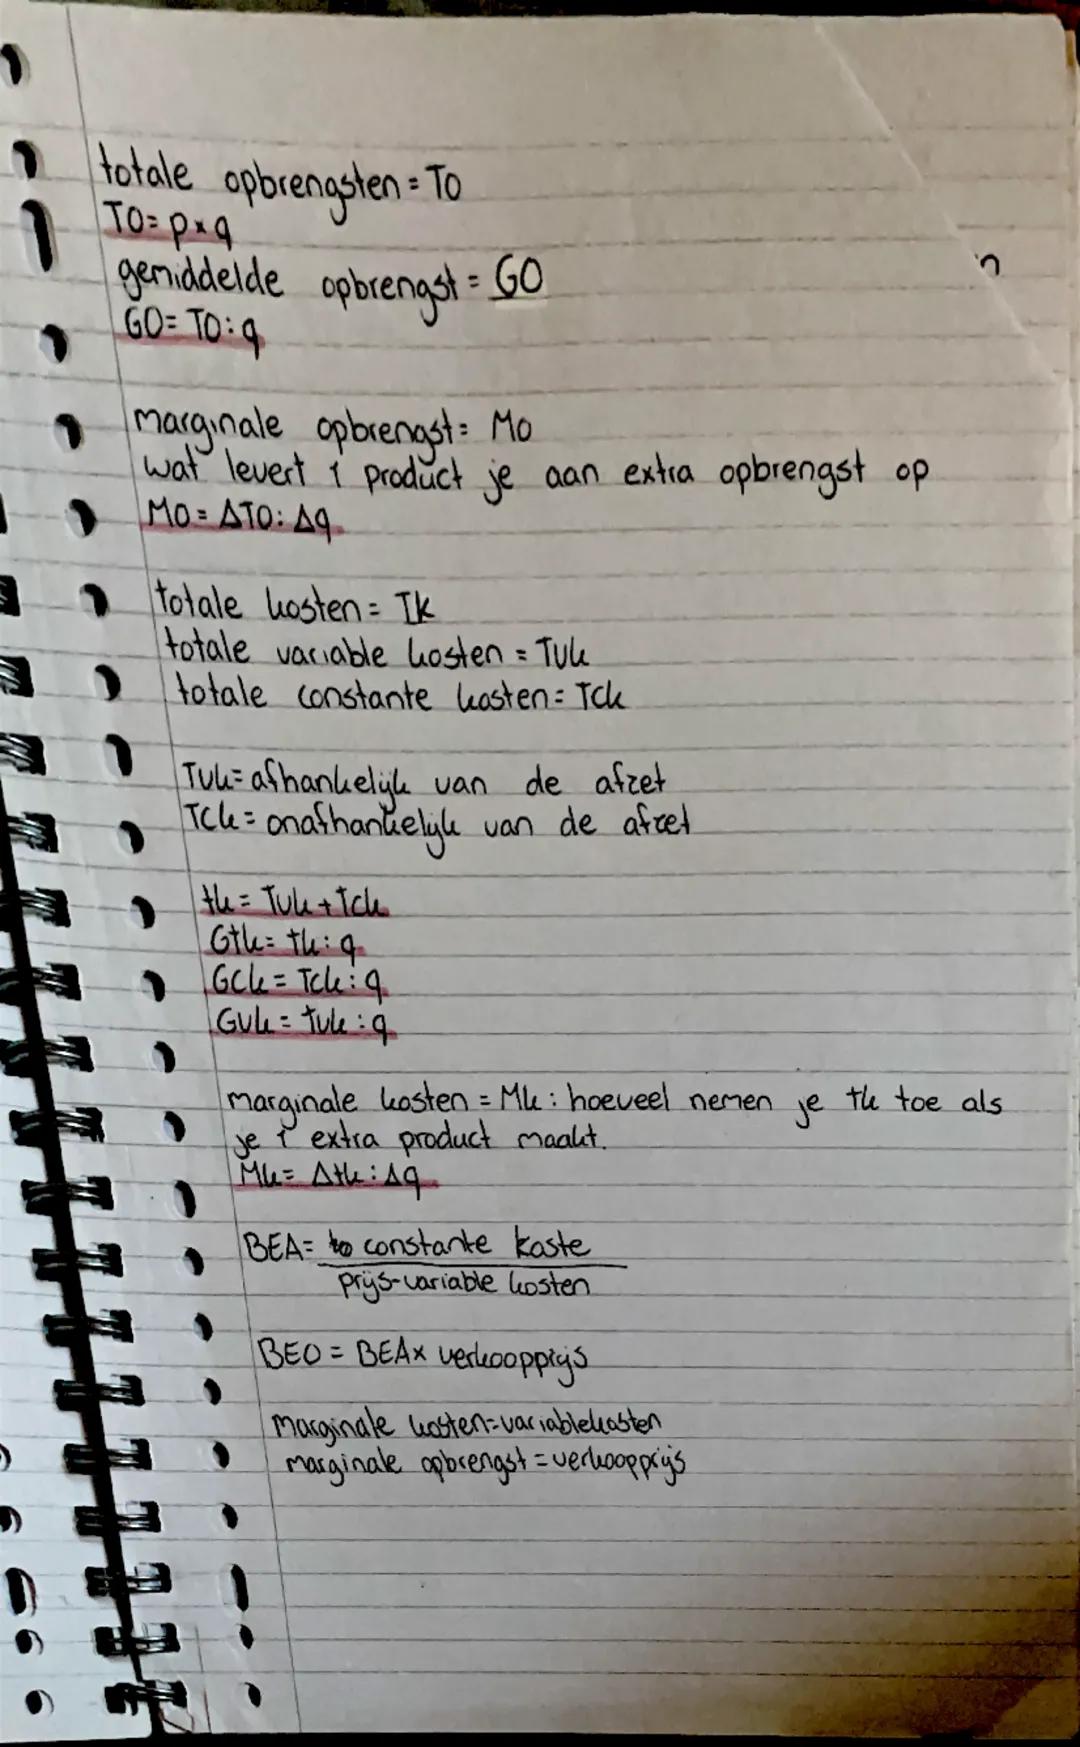 totale opbrengsten = TO
TO = p × q
gemiddelde opbrengst = GO
GO = TO : q
marginale opbrengst = MO
wat levert 1 product je aan extra opbrengst op
MO = ΔTO : Δq
totale kosten = TK
totale variable kosten = Tvk
totale constante kosten = Tck
Tvk = afhankelijk van de afzet
Tck = onafhankelijk van de afzet
tk = Tvk + Tck
Gtk = tk : q
GCk = Tck : q
Gvk = tvk : q
marginale kosten = Mk : hoeveel nemen je tk toe als
je 1 extra product maakt.
Mk = Δtk : Δq
BEA = constante koste
prijs-variable kosten
BEO = BEA × verkoopprijs
marginale kosten = variablekosten
marginale opbrengst = verkoopprijs